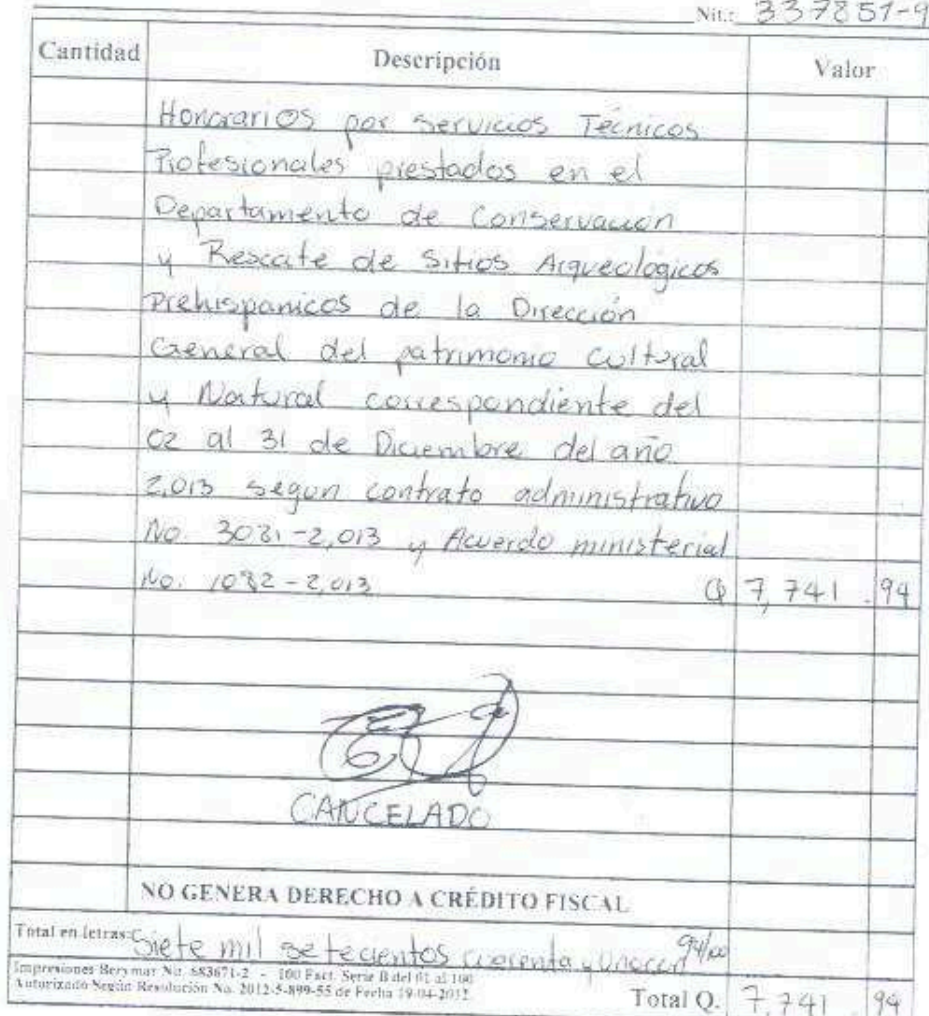 Nit.: 337851-9
Cantidad Descripción Valor
Honorarios por Servicios Técnicos
Profesionales prestados en el
Departamento de Conservación
y Rescate de Sitios Arqueológicos
Prehispanicos de la Dirección
General del patrimonio Cultural
y Natural correspondiente del
02 al 31 de Diciembre del año
2,013 segun contrato administrativo
No. 3031-2,013 y Acuerdo ministerial
No. 1082-2,013 Q 7,741.94
CANCELADO
NO GENERA DERECHO A CRÉDITO FISCAL
Total en letras: Siete mil setecientos cuarenta y Uno con 94/100
Impresiones Berymar Nit. 683671-2 - 100 Fact. Serie B del 01 al 100
Autorizado Según Resolución No. 2012-5-899-55 de Fecha 19-04-2012
Total Q. 7,741.94